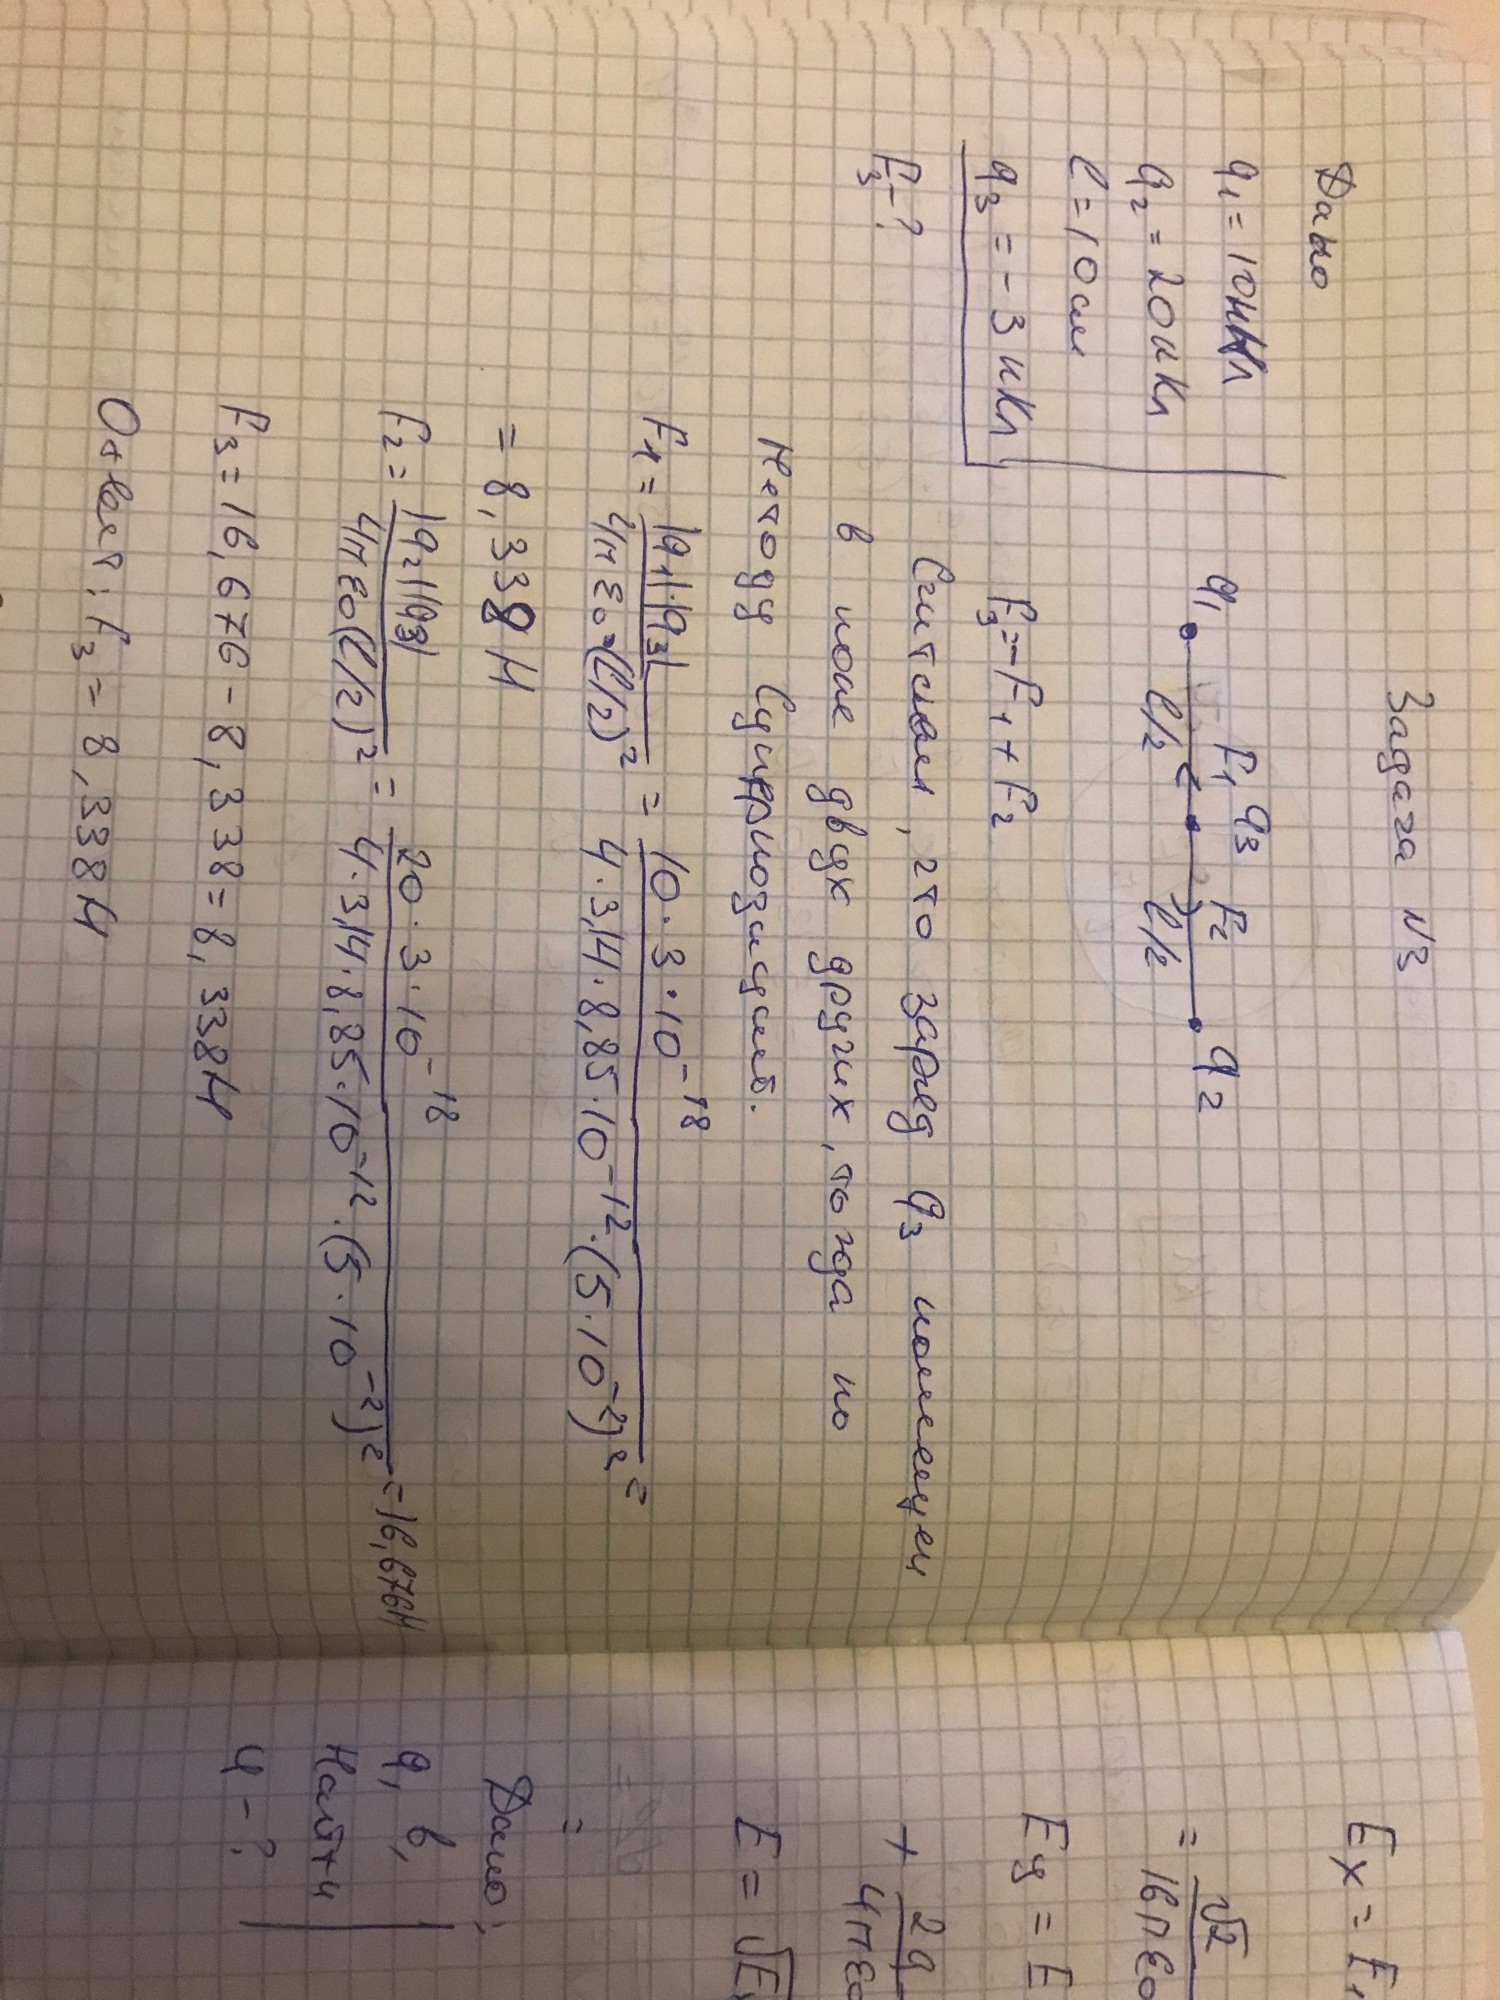 Задача N3
Дано
q₁ = 10нКл
q₂ = 20нКл
l = 10см
q₃ = -3нКл
F₃ - ?
q₁ F₁ q₃ F₂ q₂
l/2 l/2
F₃ = -F₁ + F₂
Считаем, что заряд q₃ помещен
в поле двух других, тогда по
Методу Суперпозиций.
F₁ = |q₁|·|q₃| / 4π ε₀·(l/2)² = 10·3·10⁻¹⁸ / 4·3,14·8,85·10⁻¹²·(5·10⁻²)² =
= 8,338 Н
F₂ = |q₂||q₃| / 4π ε₀(l/2)² = 20·3·10⁻¹⁸ / 4·3,14·8,85·10⁻¹²·(5·10⁻²)² = 16,676Н
F₃ = 16,676 - 8,338 = 8,338Н
Ответ: F₃ = 8,338Н
Eₓ = E₁
= √2 / 16π ε₀
Eу = E
+ 2q / 4π ε₀
E = √Eₓ
=
Дано:
q, в,
Найти
φ - ?